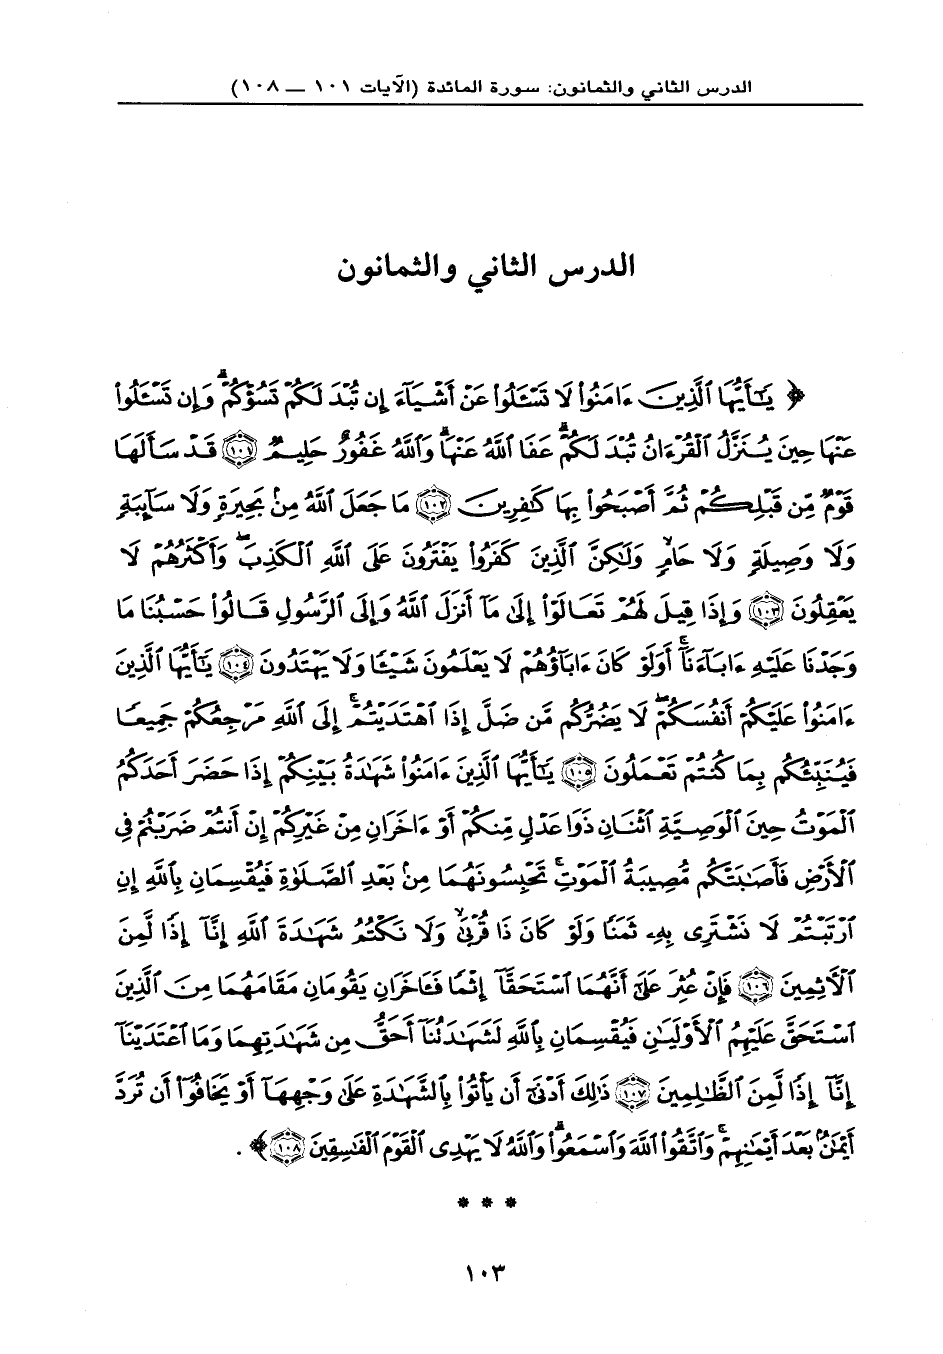 الدرس الثاني والثمانون: سورة المائدة (الآيات ١٠١ — ١٠٨)
الدرس الثاني والثمانون
﴿ يَـٰٓأَيُّهَا ٱلَّذِينَ ءَامَنُوا۟ لَا تَسْـَٔلُوا۟ عَنْ أَشْيَآءَ إِن تُبْدَ لَكُمْ تَسُؤْكُمْ ۖ وَإِن تَسْـَٔلُوا۟
عَنْهَا حِينَ يُنَزَّلُ ٱلْقُرْءَانُ تُبْدَ لَكُمْ ۗ عَفَا ٱللَّهُ عَنْهَا ۗ وَٱللَّهُ غَفُورٌ حَلِيمٌ ١٠١ قَدْ سَأَلَهَا
قَوْمٌ مِّن قَبْلِكُمْ ثُمَّ أَصْبَحُوا۟ بِهَا كَـٰفِرِينَ ١٠٢ مَا جَعَلَ ٱللَّهُ مِنۢ بَحِيرَةٍ وَلَا سَآئِبَةٍ
وَلَا وَصِيلَةٍ وَلَا حَامٍ ۙ وَلَـٰكِنَّ ٱلَّذِينَ كَفَرُوا۟ يَفْتَرُونَ عَلَى ٱللَّهِ ٱلْكَذِبَ ۖ وَأَكْثَرُهُمْ لَا
يَعْقِلُونَ ١٠٣ وَإِذَا قِيلَ لَهُمْ تَعَالَوْا۟ إِلَىٰ مَآ أَنزَلَ ٱللَّهُ وَإِلَى ٱلرَّسُولِ قَالُوا۟ حَسْبُنَا مَا
وَجَدْنَا عَلَيْهِ ءَابَآءَنَآ ۚ أَوَلَوْ كَانَ ءَابَآؤُهُمْ لَا يَعْلَمُونَ شَيْـًٔا وَلَا يَهْتَدُونَ ١٠٤ يَـٰٓأَيُّهَا ٱلَّذِينَ
ءَامَنُوا۟ عَلَيْكُمْ أَنفُسَكُمْ ۖ لَا يَضُرُّكُم مَّن ضَلَّ إِذَا ٱهْتَدَيْتُمْ ۚ إِلَى ٱللَّهِ مَرْجِعُكُمْ جَمِيعًا
فَيُنَبِّئُكُم بِمَا كُنتُمْ تَعْمَلُونَ ١٠٥ يَـٰٓأَيُّهَا ٱلَّذِينَ ءَامَنُوا۟ شَهَـٰدَةُ بَيْنِكُمْ إِذَا حَضَرَ أَحَدَكُمُ
ٱلْمَوْتُ حِينَ ٱلْوَصِيَّةِ ٱثْنَانِ ذَوَا عَدْلٍ مِّنكُمْ أَوْ ءَاخَرَانِ مِنْ غَيْرِكُمْ إِنْ أَنتُمْ ضَرَبْتُمْ فِى
ٱلْأَرْضِ فَأَصَـٰبَتْكُم مُّصِيبَةُ ٱلْمَوْتِ ۚ تَحْبِسُونَهُمَا مِنۢ بَعْدِ ٱلصَّلَوٰةِ فَيُقْسِمَانِ بِٱللَّهِ إِنِ
ٱرْتَبْتُمْ لَا نَشْتَرِى بِهِۦ ثَمَنًا وَلَوْ كَانَ ذَا قُرْبَىٰ ۙ وَلَا نَكْتُمُ شَهَـٰدَةَ ٱللَّهِ إِنَّآ إِذًا لَّمِنَ
ٱلْـَٔاثِمِينَ ١٠٦ فَإِنْ عُثِرَ عَلَىٰٓ أَنَّهُمَا ٱسْتَحَقَّآ إِثْمًا فَـَٔاخَرَانِ يَقُومَانِ مَقَامَهُمَا مِنَ ٱلَّذِينَ
ٱسْتَحَقَّ عَلَيْهِمُ ٱلْأَوْلَيَـٰنِ فَيُقْسِمَانِ بِٱللَّهِ لَشَهَـٰدَتُنَآ أَحَقُّ مِن شَهَـٰدَتِهِمَا وَمَا ٱعْتَدَيْنَآ
إِنَّآ إِذًا لَّمِنَ ٱلظَّـٰلِمِينَ ١٠٧ ذَٰلِكَ أَدْنَىٰٓ أَن يَأْتُوا۟ بِٱلشَّهَـٰدَةِ عَلَىٰ وَجْهِهَآ أَوْ يَخَافُوٓا۟ أَن تُرَدَّ
أَيْمَـٰنٌۢ بَعْدَ أَيْمَـٰنِهِمْ ۗ وَٱتَّقُوا۟ ٱللَّهَ وَٱسْمَعُوا۟ ۗ وَٱللَّهُ لَا يَهْدِى ٱلْقَوْمَ ٱلْفَـٰسِقِينَ ١٠٨ ﴾ .
* * *
١٠٣